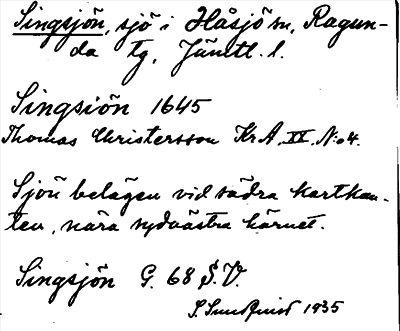 Singsjön, sjö i Håsjö sn, Ragun-
da tg, Jämtl. l.
Singsiön 1645
Thomas Christersson KrA, XX, N:o 4.
Sjön belägen vid södra kartkan-
ten, nära sydvästra hörnet.
Singsjön G. 68 S.V.
S. Sundqvist 1935